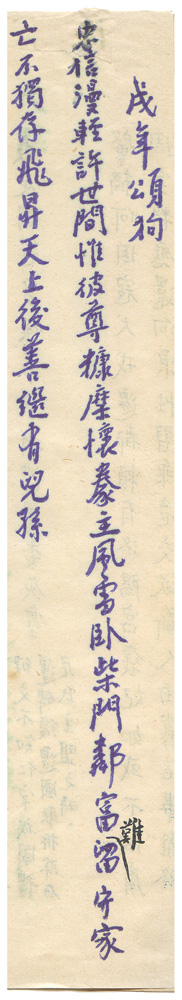 戌年頌狗
忠信漫輕許世間惟彼尊糠糜懷豢主風雪臥柴門鄰富留難守家
亡不獨存飛昇天上後善繼有兒孫